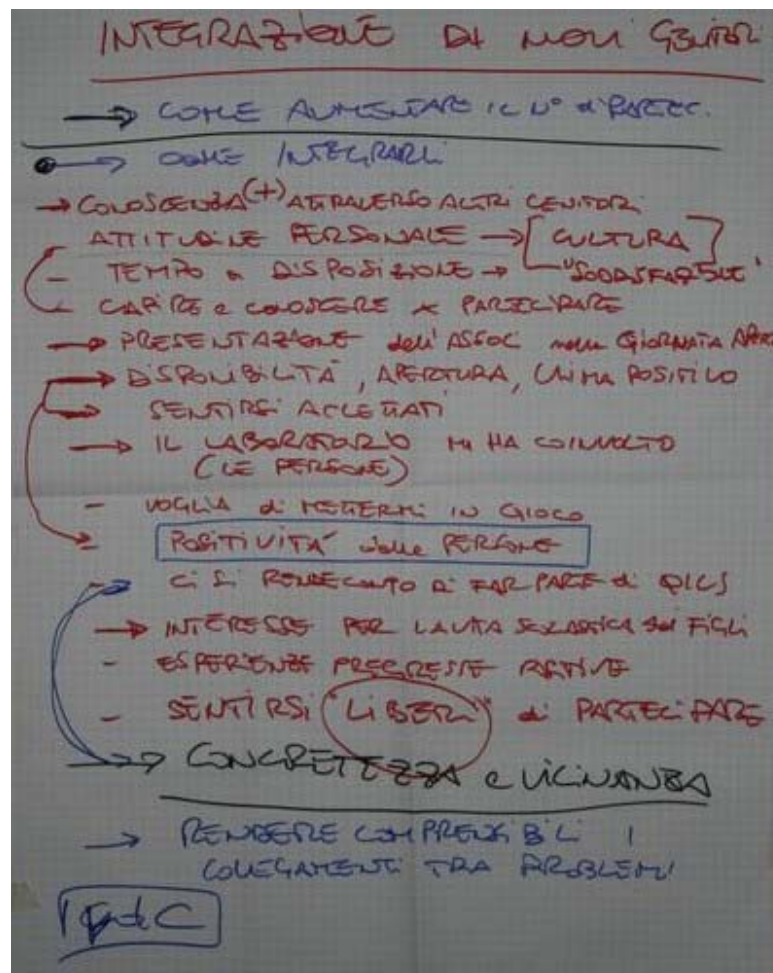 INTEGRAZIONE DI NUOVI GENITORI
→ COME AUMENTARE IL N° di PARTEC.
→ COME INTEGRARLI
→ CONOSCENZA (+) ATTRAVERSO ALTRI GENITORI
- ATTITUDINE PERSONALE → [CULTURA]
- TEMPO a DISPOSIZIONE →
- CAPIRE e CONOSCERE x PARTECIPARE
→ PRESENTAZIONE dell'ASSOC nella GIORNATA
→ DISPONIBILITÀ, APERTURA, CLIMA POSITIVO
→ SENTIRSI ACCETTATI
→ IL LABORATORIO MI HA COINVOLTO
(LE PERSONE)
- VOGLIA di METTERMI IN GIOCO
- POSITIVITÀ delle PERSONE
- CI SI RENDE CONTO DI FAR PARTE di
→ INTERESSE PER LA VITA SCOLASTICA dei FIGLI
- ESPERIENZE PREGRESSE POSITIVE
- SENTIRSI "LIBERI" di PARTECIPARE
→ CONCRETEZZA e VICINANZA
→ RENDERE COMPRENSIBILI I
COLLEGAMENTI TRA PROBLEMI